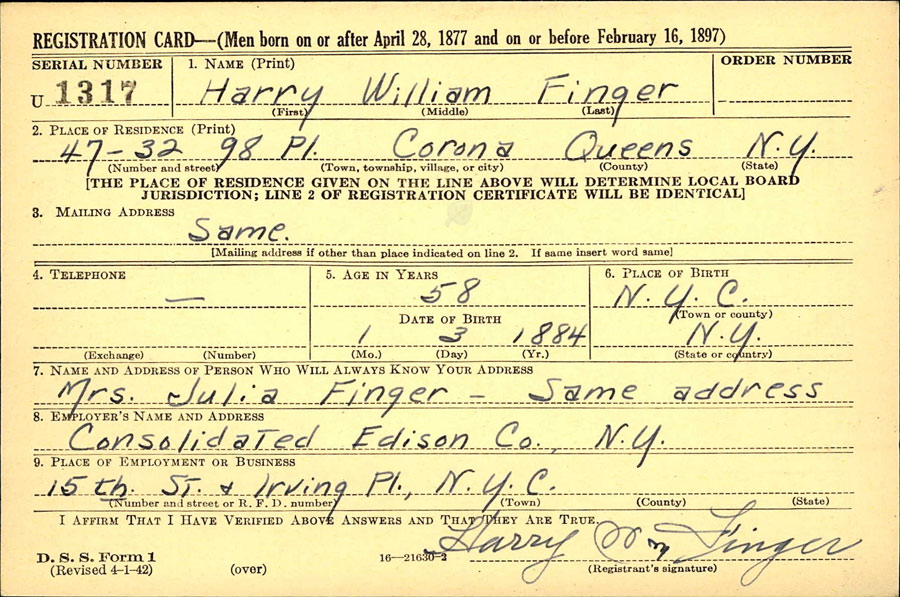 REGISTRATION CARD—(Men born on or after April 28, 1877 and on or before February 16, 1897)
SERIAL NUMBER 1. NAME (Print) ORDER NUMBER
U 1317 Harry William Finger
(First) (Middle) (Last)
2. PLACE OF RESIDENCE (Print)
47-32 98 Pl. Corona Queens N.Y.
(Number and street) (Town, township, village, or city) (County) (State)
[THE PLACE OF RESIDENCE GIVEN ON THE LINE ABOVE WILL DETERMINE LOCAL BOARD
JURISDICTION; LINE 2 OF REGISTRATION CERTIFICATE WILL BE IDENTICAL]
3. MAILING ADDRESS
Same.
[Mailing address if other than place indicated on line 2. If same insert word same]
4. TELEPHONE 5. AGE IN YEARS 6. PLACE OF BIRTH
— 58 N.Y.C.
(Town or county)
DATE OF BIRTH
1 3 1884 N.Y.
(Exchange) (Number) (Mo.) (Day) (Yr.) (State or country)
7. NAME AND ADDRESS OF PERSON WHO WILL ALWAYS KNOW YOUR ADDRESS
Mrs. Julia Finger - Same address
8. EMPLOYER'S NAME AND ADDRESS
Consolidated Edison Co., N.Y.
9. PLACE OF EMPLOYMENT OR BUSINESS
15th. St. & Irving Pl., N.Y.C.
(Number and street or R. F. D. number) (Town) (County) (State)
I AFFIRM THAT I HAVE VERIFIED ABOVE ANSWERS AND THAT THEY ARE TRUE.
Harry Wm Finger
D. S. S. Form 1 16—21630-2
(Revised 4-1-42) (over) (Registrant's signature)